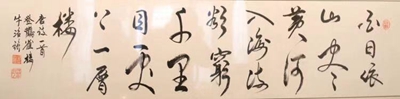 白日依
山尽
黄河
入海流
欲窮
千里
目更
上一層
楼
唐诗一首
登鸛雀樓